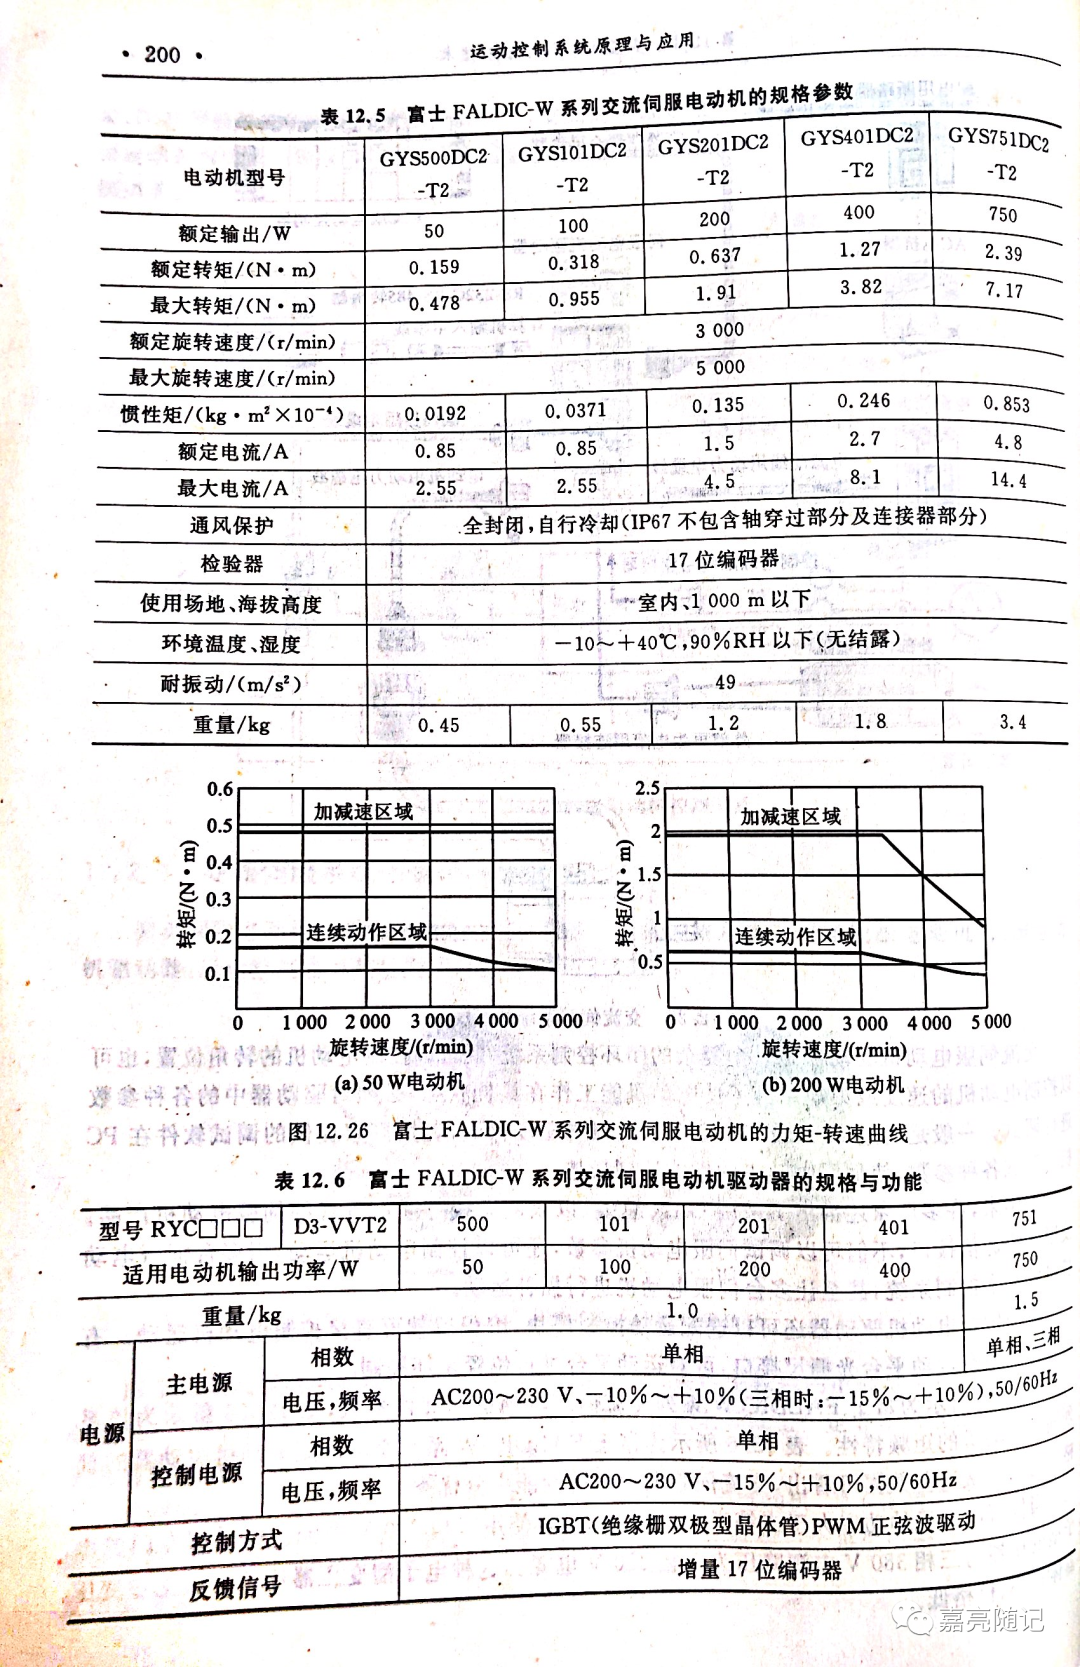 • 200 •
运动控制系统原理与应用
表 12.5 富士 FALDIC-W 系列交流伺服电动机的规格参数
电动机型号 GYS500DC2-T2 GYS101DC2-T2 GYS201DC2-T2 GYS401DC2-T2 GYS751DC2-T2
额定输出/W 50 100 200 400 750
额定转矩/(N·m) 0.159 0.318 0.637 1.27 2.39
最大转矩/(N·m) 0.478 0.955 1.91 3.82 7.17
额定旋转速度/(r/min) 3 000
最大旋转速度/(r/min) 5 000
惯性矩/(kg·m²×10⁻⁴) 0.0192 0.0371 0.135 0.246 0.853
额定电流/A 0.85 0.85 1.5 2.7 4.8
最大电流/A 2.55 2.55 4.5 8.1 14.4
通风保护 全封闭,自行冷却(IP67 不包含轴穿过部分及连接器部分)
检验器 17 位编码器
使用场地、海拔高度 室内、1 000 m 以下
环境温度、湿度 -10～+40℃,90%RH 以下(无结露)
耐振动/(m/s²) 49
重量/kg 0.45 0.55 1.2 1.8 3.4
转矩/(N·m)
0.6
0.5
0.4
0.3
0.2
0.1
加减速区域
连续动作区域
0 1 000 2 000 3 000 4 000 5 000
旋转速度/(r/min)
(a) 50 W电动机
转矩/(N·m)
2.5
2
1.5
1
0.5
加减速区域
连续动作区域
0 1 000 2 000 3 000 4 000 5 000
旋转速度/(r/min)
(b) 200 W电动机
图 12.26 富士 FALDIC-W 系列交流伺服电动机的力矩-转速曲线
表 12.6 富士 FALDIC-W 系列交流伺服电动机驱动器的规格与功能
型号 RYC□□□ D3-VVT2 500 101 201 401 751
适用电动机输出功率/W 50 100 200 400 750
重量/kg 1.0 1.5
电源 主电源 相数 单相 单相、三相
电压,频率 AC200～230 V、-10%～+10%(三相时:-15%～+10%),50/60Hz
控制电源 相数 单相
电压,频率 AC200～230 V、-15%～+10%,50/60Hz
控制方式 IGBT(绝缘栅双极型晶体管)PWM 正弦波驱动
反馈信号 增量 17 位编码器
嘉亮随记